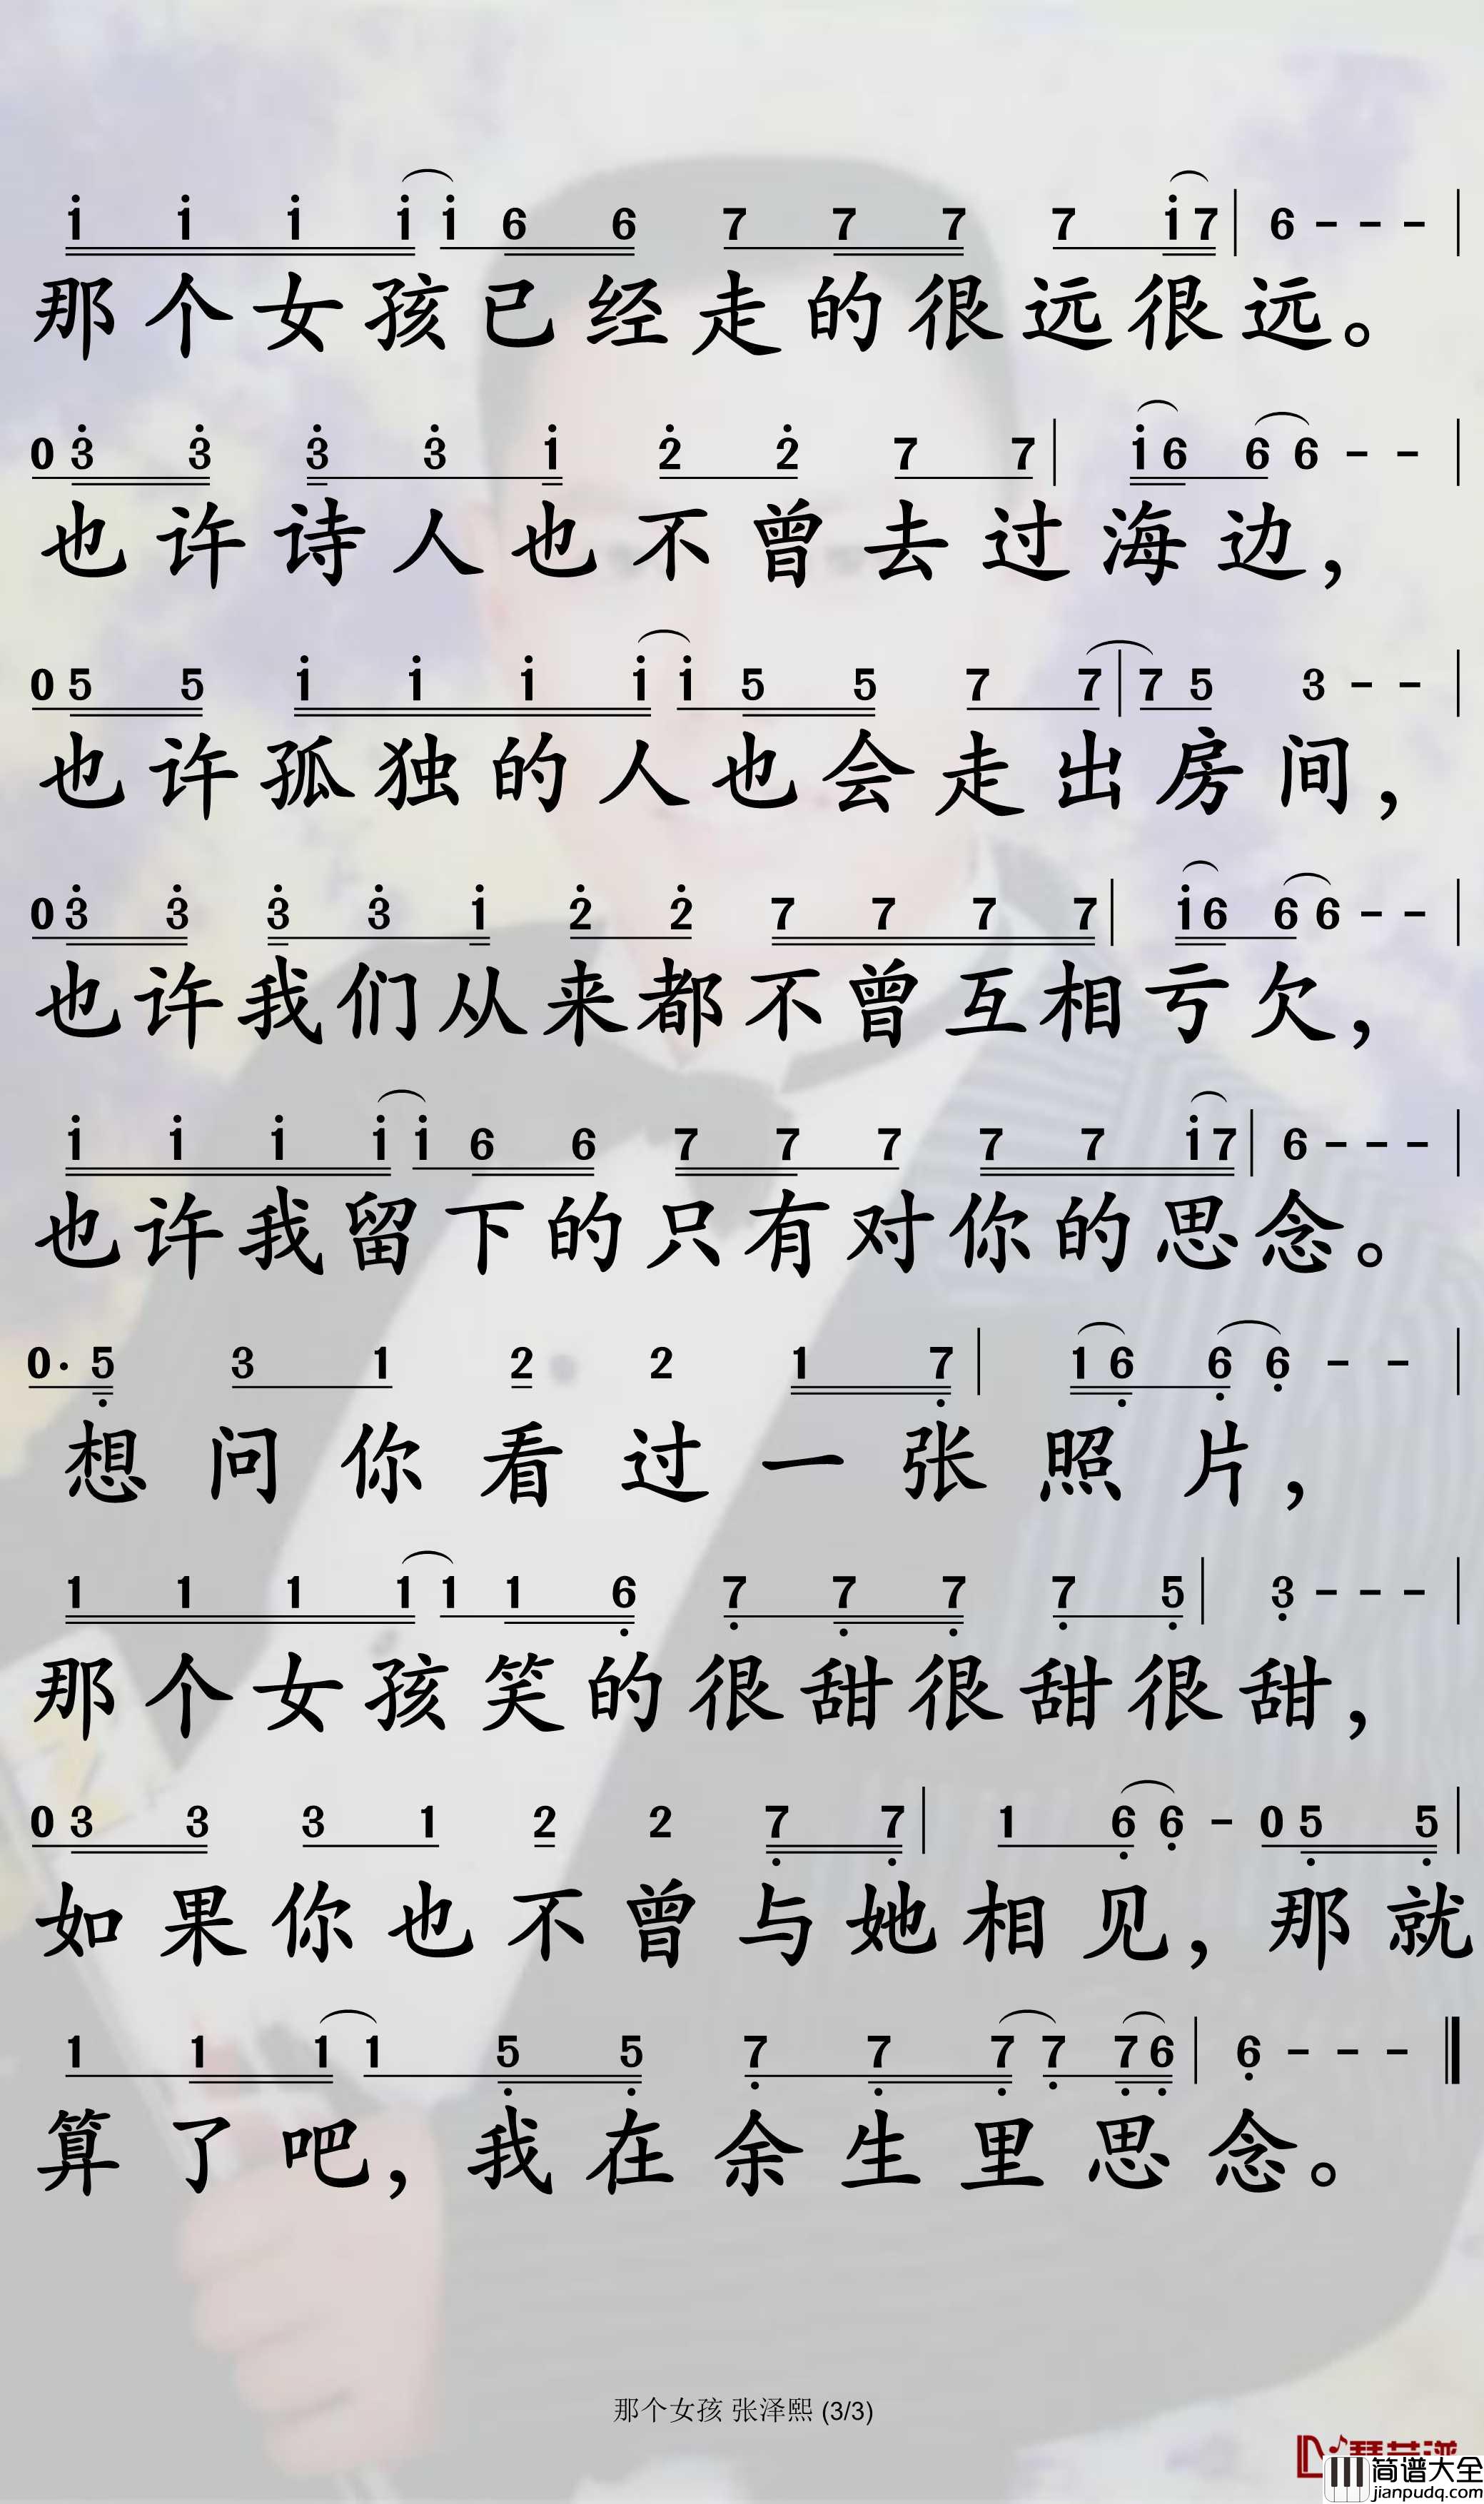 i i i i i 6 6 7 7 7 7 i 7 | 6 - - - |
那个女孩已经走的很远很远。
0 3 3 3 3 i 2 2 7 7 | i 6 6 6 - - |
也许诗人也不曾去过海边，
0 5 5 i i i i i 5 5 7 7 | 7 5 3 - - |
也许孤独的人也会走出房间，
0 3 3 3 3 i 2 2 7 7 7 7 | i 6 6 6 - - |
也许我们从来都不曾互相亏欠，
i i i i i 6 6 7 7 7 7 7 i 7 | 6 - - - |
也许我留下的只有对你的思念。
0· 5 3 1 2 2 1 7 | 1 6 6 6 - - |
想问你看过一张照片，
1 1 1 1 1 1 6 7 7 7 7 5 | 3 - - - |
那个女孩笑的很甜很甜很甜，
0 3 3 3 1 2 2 7 7 | 1 6 6 - 0 5 5 |
如果你也不曾与她相见，那就
1 1 1 1 5 5 7 7 7 7 7 6 | 6 - - - ‖
算了吧，我在余生里思念。
那个女孩 张泽熙 (3/3)
简谱大全
jianpudq.com